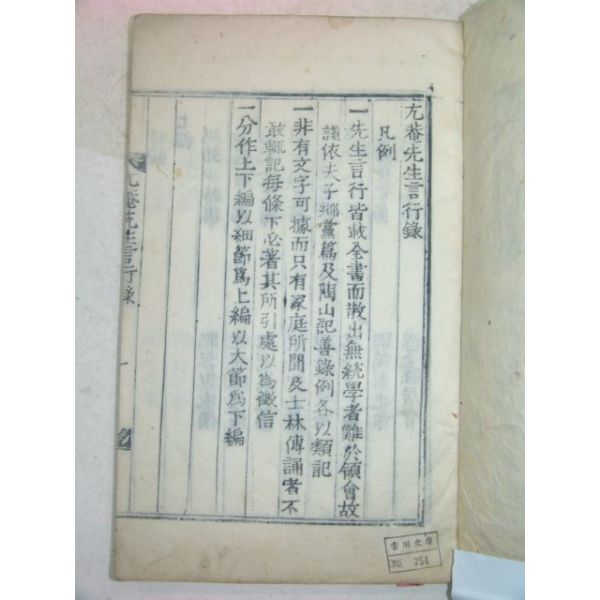 尤菴先生言行錄
凡例
一先生言行皆載全書而散出無統學者難於領會故
謹依夫子鄕黨篇及陶山記善錄例各以類記
一非有文字可據而只有家庭所聞及士林傳誦者不
敢輒記每條下必著其所引處以爲徵信
一分作上下編以細節爲上編以大節爲下編
尤菴先生言行錄
一
No. 754